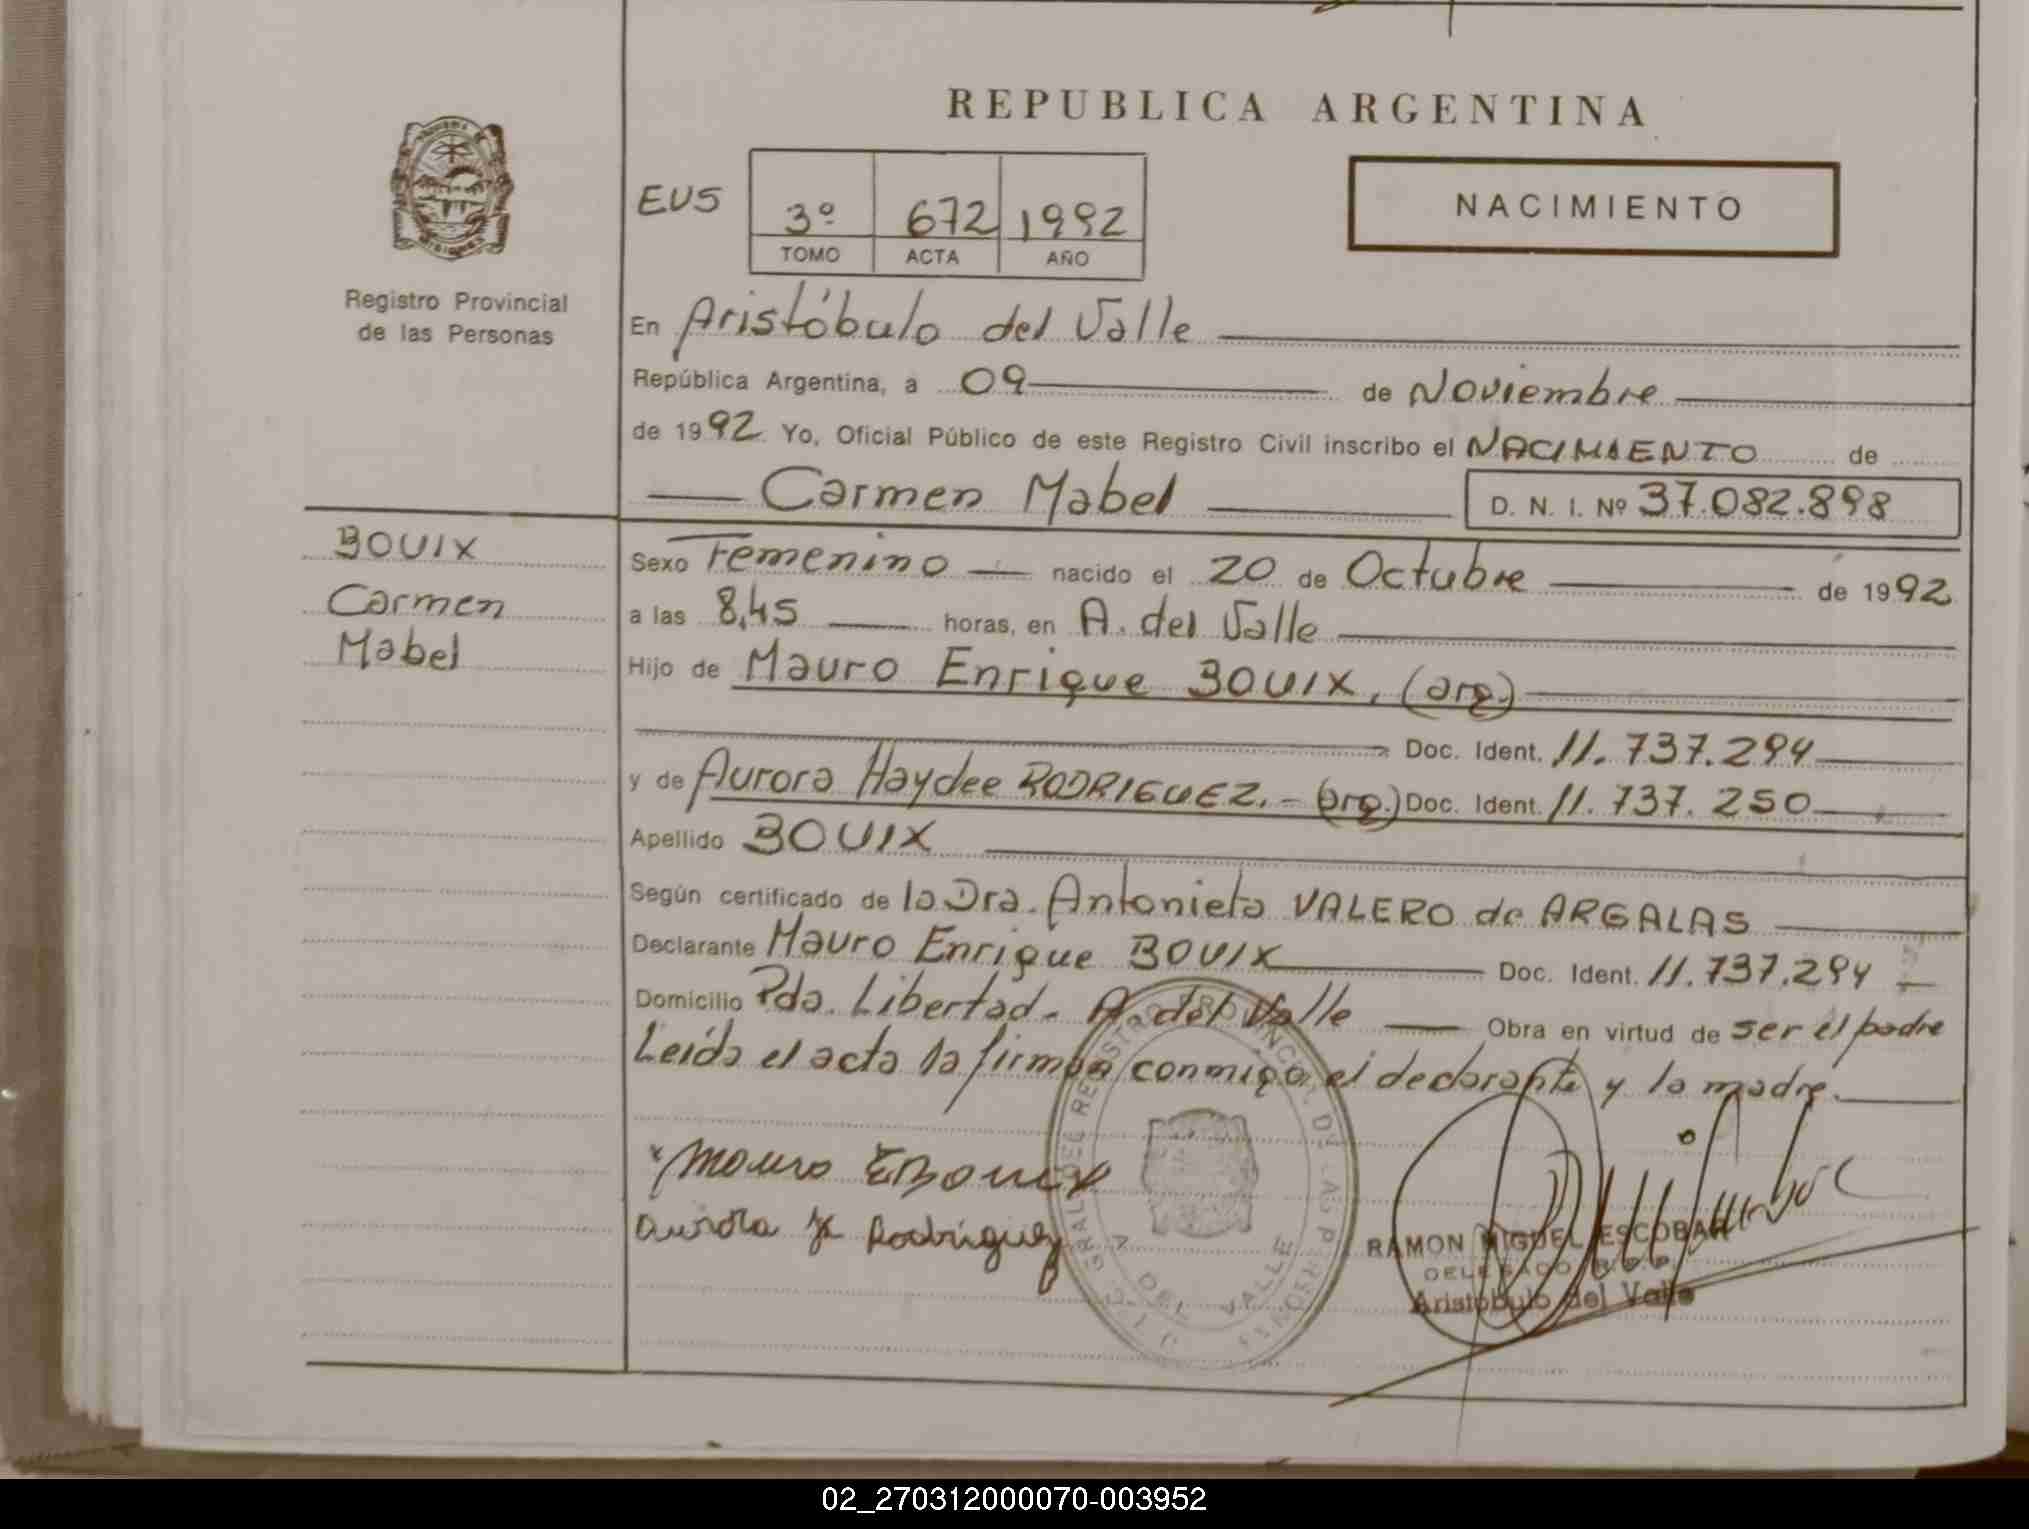 REPUBLICA ARGENTINA
NACIMIENTO
EUS
3º 672 1992
TOMO ACTA AÑO
Registro Provincial
de las Personas
En Aristóbulo del Valle
República Argentina, a 09 de Noviembre
de 1992 Yo, Oficial Público de este Registro Civil inscribo el NACIMIENTO de
Carmen Mabel D. N. I. Nº 37.082.898
BOUIX
Carmen
Mabel
Sexo Femenino nacido el 20 de Octubre de 1992
a las 8,45 horas, en A. del Valle
Hijo de Mauro Enrique BOUIX, (arg.)
Doc. Ident. 11.737.294
y de Aurora Haydee RODRIGUEZ.- (arg.) Doc. Ident. 11.737.250
Apellido BOUIX
Según certificado de la Dra. Antonieta VALERO de ARGALAS
Declarante Mauro Enrique BOUIX Doc. Ident. 11.737.294
Domicilio Pda. Libertad - A. del Valle Obra en virtud de ser el padre
Leída el acta la firman conmigo el declarante y la madre.
Mauro E Bouix
Aurora H Rodriguez
RAMON MIGUEL ESCOBAR
DELEGADO R.P.P.
Aristobulo del Valle
GRAL. DEL REGISTRO PROVINCIAL DE LAS PERSONAS
A DEL VALLE
02_270312000070-003952